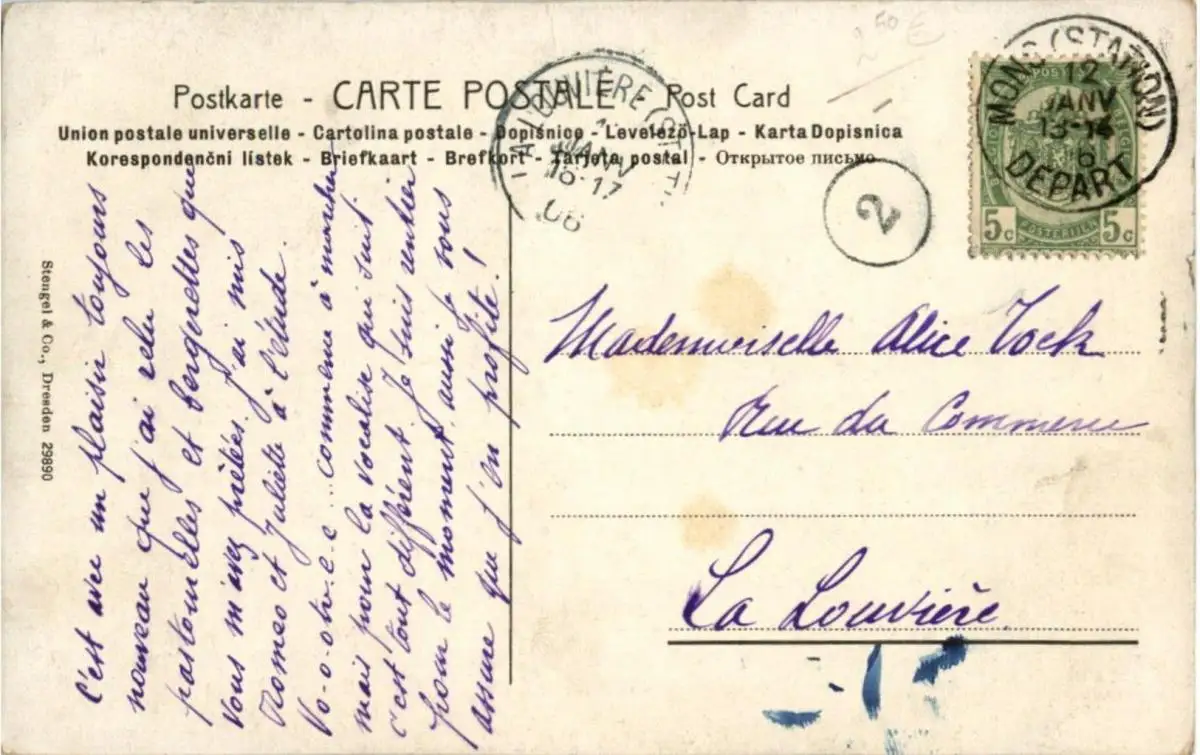 2 50 €
Postkarte - CARTE POSTALE - Post Card
Union postale universelle - Cartolina postale - Dopisnice - Levelező-Lap - Karta Dopisnica
Korespondenční lístek - Briefkaart - Brefkort - Tarjeta postal - Открытое письмо
LA LOUVIÈRE (STAT
JANV
16-17
06
2
MONS (STATION)
12
JANV
13-14
6
DÉPART
5c
POSTERIJEN
5c
Stengel & Co., Dresden 29890
C'est avec un plaisir toujours
nouveau que j'ai relu les
pastourelles et bergerettes que
vous m'avez prêtées. J'ai mis
Romeo et Juliette à l'étude.
Vo-o-otre.c.. commence à marcher
mais pour la vocalise qui suit
c'est tout différent. Je suis rentier
pour le moment, aussi je vous
assure que j'en profite!
Mademoiselle Alice Tock
Rue du Commerce
La Louvière